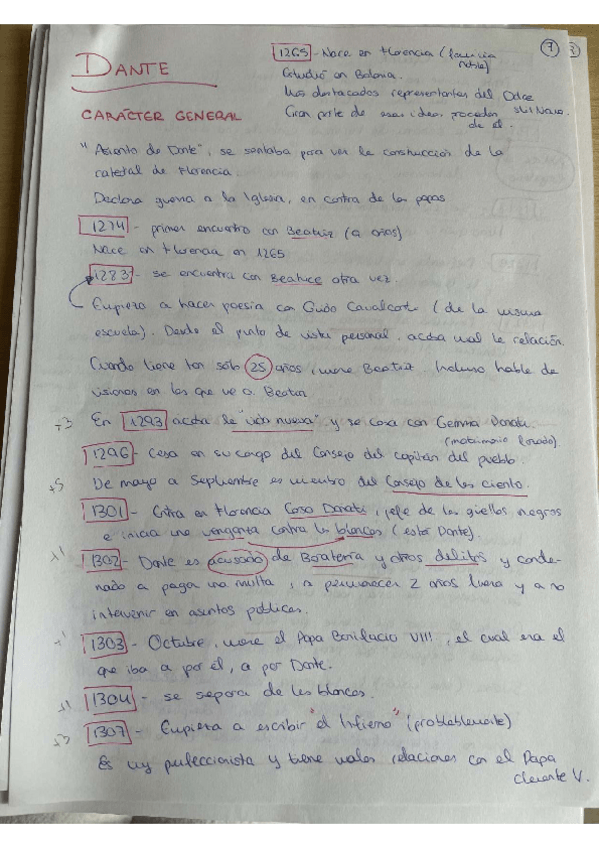 7
1265 - Nace en Florencia (familia noble)
DANTE
Estudió en Bolonia.
Más destacados representantes del Dolce Stil Novo.
CARÁCTER GENERAL
Gran parte de esas ideas proceden de él.
"Asiento de Dante", se sentaba para ver la construcción de la
catetral de Florencia.
Declara guerra a la Iglesia, en contra de los papas
1274 - primer encuentro con Beatriz (9 años)
Nace en Florencia en 1265
1283 - se encuentra con Beatrice otra vez
Empieza a hacer poesía con Guido Cavalcate (de la misma
escuela). Desde el punto de vista personal, acaba mal la relación.
Cuando tiene tan sólo 25 años, muere Beatriz. Incluso habla de
visiones en las que ve a Beatriz
+3
En 1293 acaba la "vida nueva" y se casa con Gemma Donati.
(matrimonio forzado)
1296 - Cesa en su cargo del Consejo del capitán del pueblo.
+5
De mayo a Septiembre es miembro del Consejo de los ciento.
1301 - Entra en Florencia Corso Donati, jefe de los güelfos negros
e inicia una venganza contra los blancos (estar Dante).
1302 - Dante es acusado de Baratería y otros delitos y conde-
nado a pagar una multa, a permanecer 2 años fuera y a no
intervenir en asuntos públicos.
1303 - Octubre, muere el Papa Bonifacio VIII, el cual era el
que iba a por él, a por Dante.
1304 - se separa de los blancos.
1307 - Empieza a escribir "el Infierno" (problablemente)
Es muy perfeccionista y tiene malas relaciones con el Papa
Clemente V.